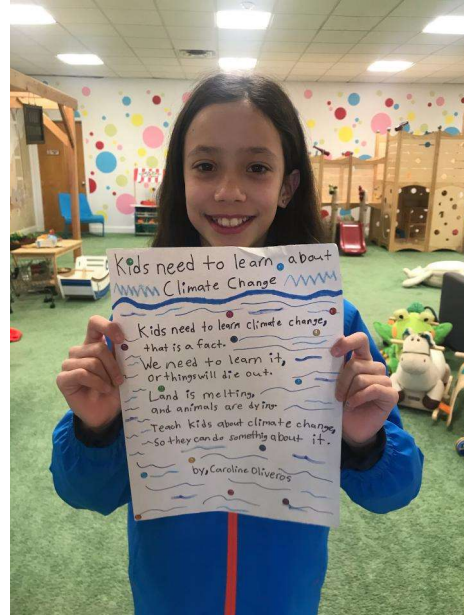 Kids need to learn about
Climate Change
Kids need to learn climate change,
that is a fact.
We need to learn it,
or things will die out.
Land is melting,
and animals are dying
Teach kids about climate change,
So they can do somethig about it.
by, Caroline Oliveros